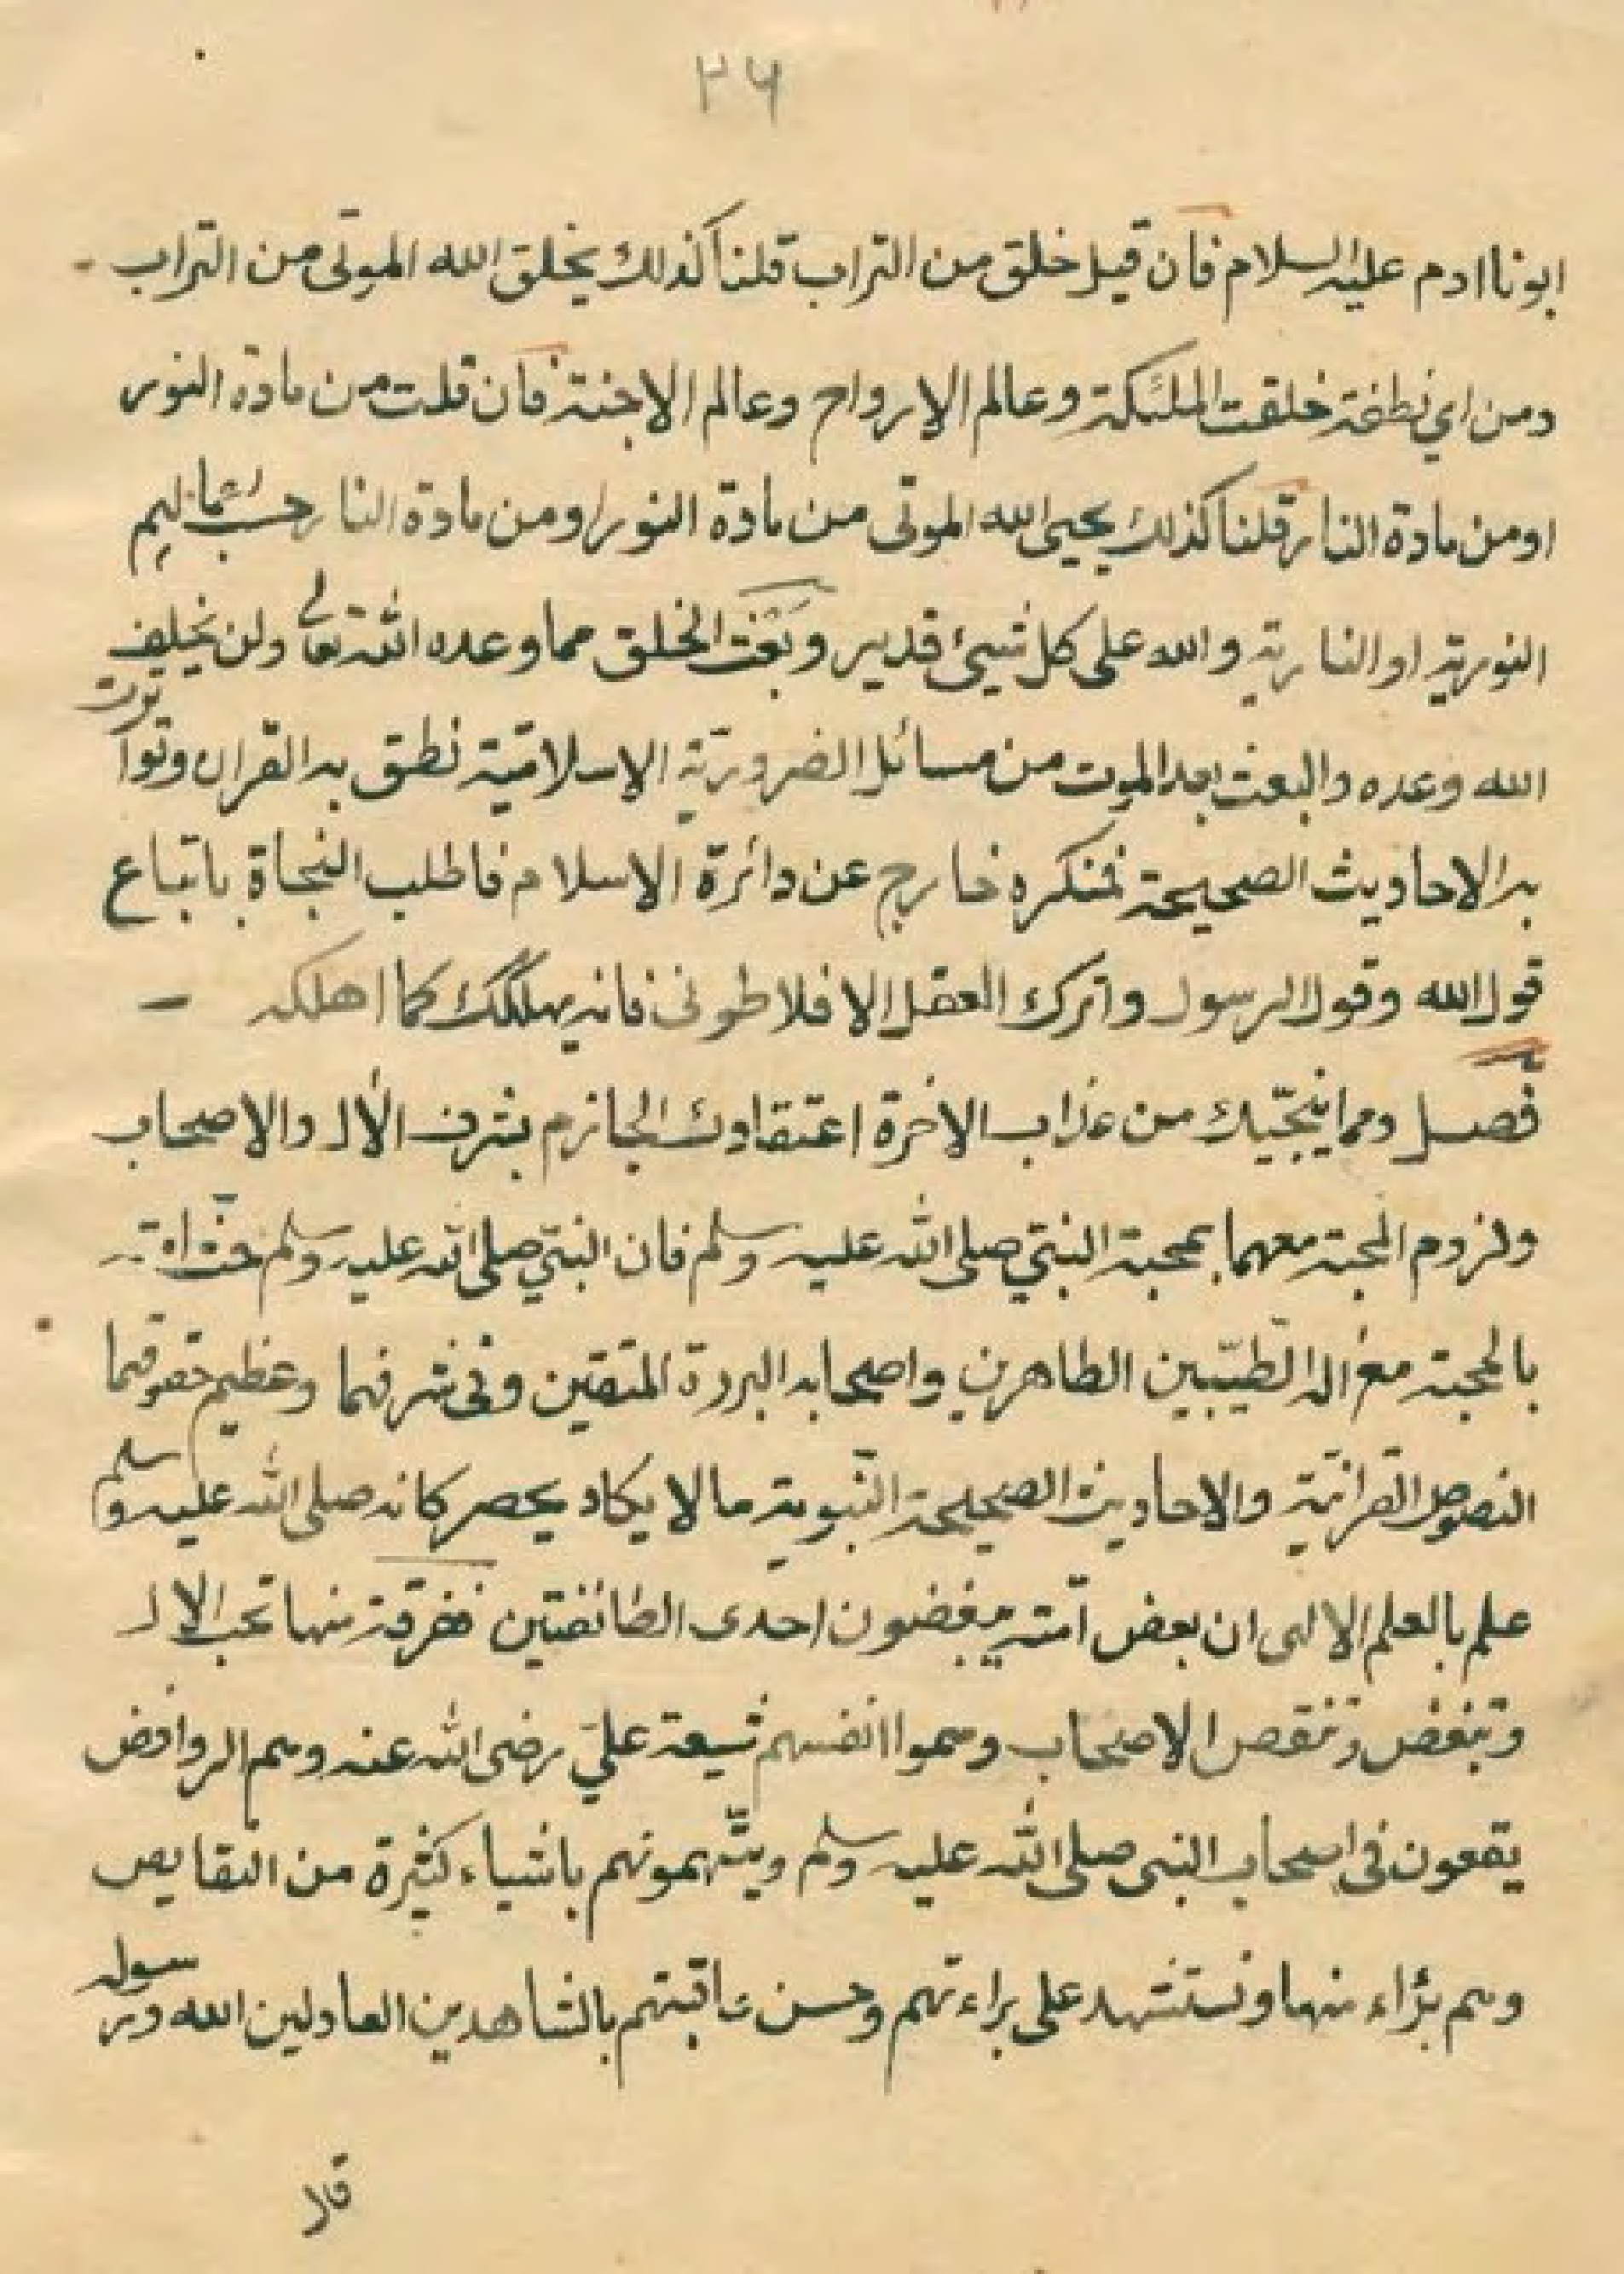 ٢٦
ابونا ادم عليه السلام فان قيل خلق من التراب قلنا كذلك يخلق الله الموتى من التراب
ومن اي نطفة خلقت الملئكة وعالم الارواح وعالم الاجنة فان قلت من مادة النور
او من مادة النار قلنا كذلك يحيى الله الموتى من مادة النور او من مادة النار حسب
النورية او النارية والله على كل شيئ قدير وبَعْث الخلق مما وعده الله تعالى ولن يخلف
الله وعده والبعث بعد الموت من مسائل الضرورية الاسلامية نطق به القران وتواترت
به الاحاديث الصحيحة فمنكره خارج عن دائرة الاسلام فاطلب النجاة باتباع
قول الله وقول الرسول واترك العقل الافلاطونى فانه يهلكك كما اهلكه
فصل ومما ينجّيك من عذاب الاخرة اعتقادك الجازم بشرف الأل والاصحاب
ولزوم المحبة معهما بمحبة النبي صلى الله عليه وسلم فان النبي صلى الله عليه وسلم حث امته
بالمحبة مع اله الطيّبين الطاهرين واصحابه البررة المتقين وفى شرفهما وعظيم حقوقهما
النصوص القرانية والاحاديث الصحيحة النبوية ما لا يكاد يحصر كانه صلى الله عليه وسلم
علم بالعلم الالهى ان بعض امته يبغضون احدى الطائفتين ففرقة منها تحب الال
وتبغض وتنقص الاصحاب وسموا انفسهم شيعة علي رضى الله عنه وهم الروافض
يقعون فى اصحاب النبى صلى الله عليه وسلم ويتّهمونهم باشياء كثيرة من النقايص
وهم برٔاء منها ونستشهد على براءتهم وحسن عاقبتهم بالشاهدين العادلين الله ورسوله
قال